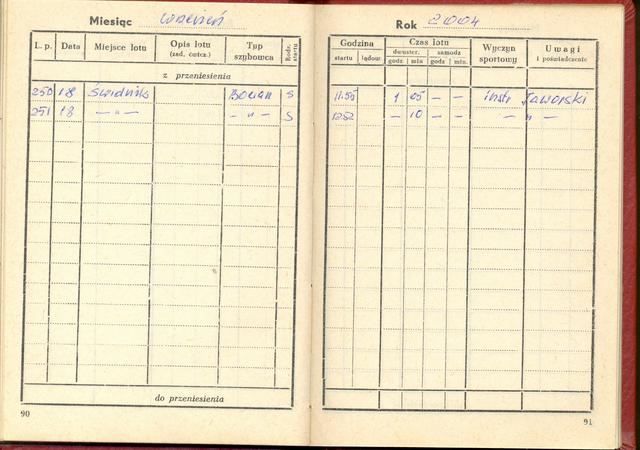 Miesiąc wrzesień
L. p. Data Miejsce lotu Opis lotu (zad. ćwicz.) Typ szybowca Rodz. startu
z przeniesienia
250 18 Świdnik Bocian S
251 18 —〃— —〃— S
do przeniesienia
90
Rok 2004
Godzina Czas lotu Wyczyn sportowy Uwagi i poświadczenie
dwuster. samodz
startu lądow. godz min godz min.
11.55 1 05 — — instr Jaworski
1252 — 10 — — —〃—
91